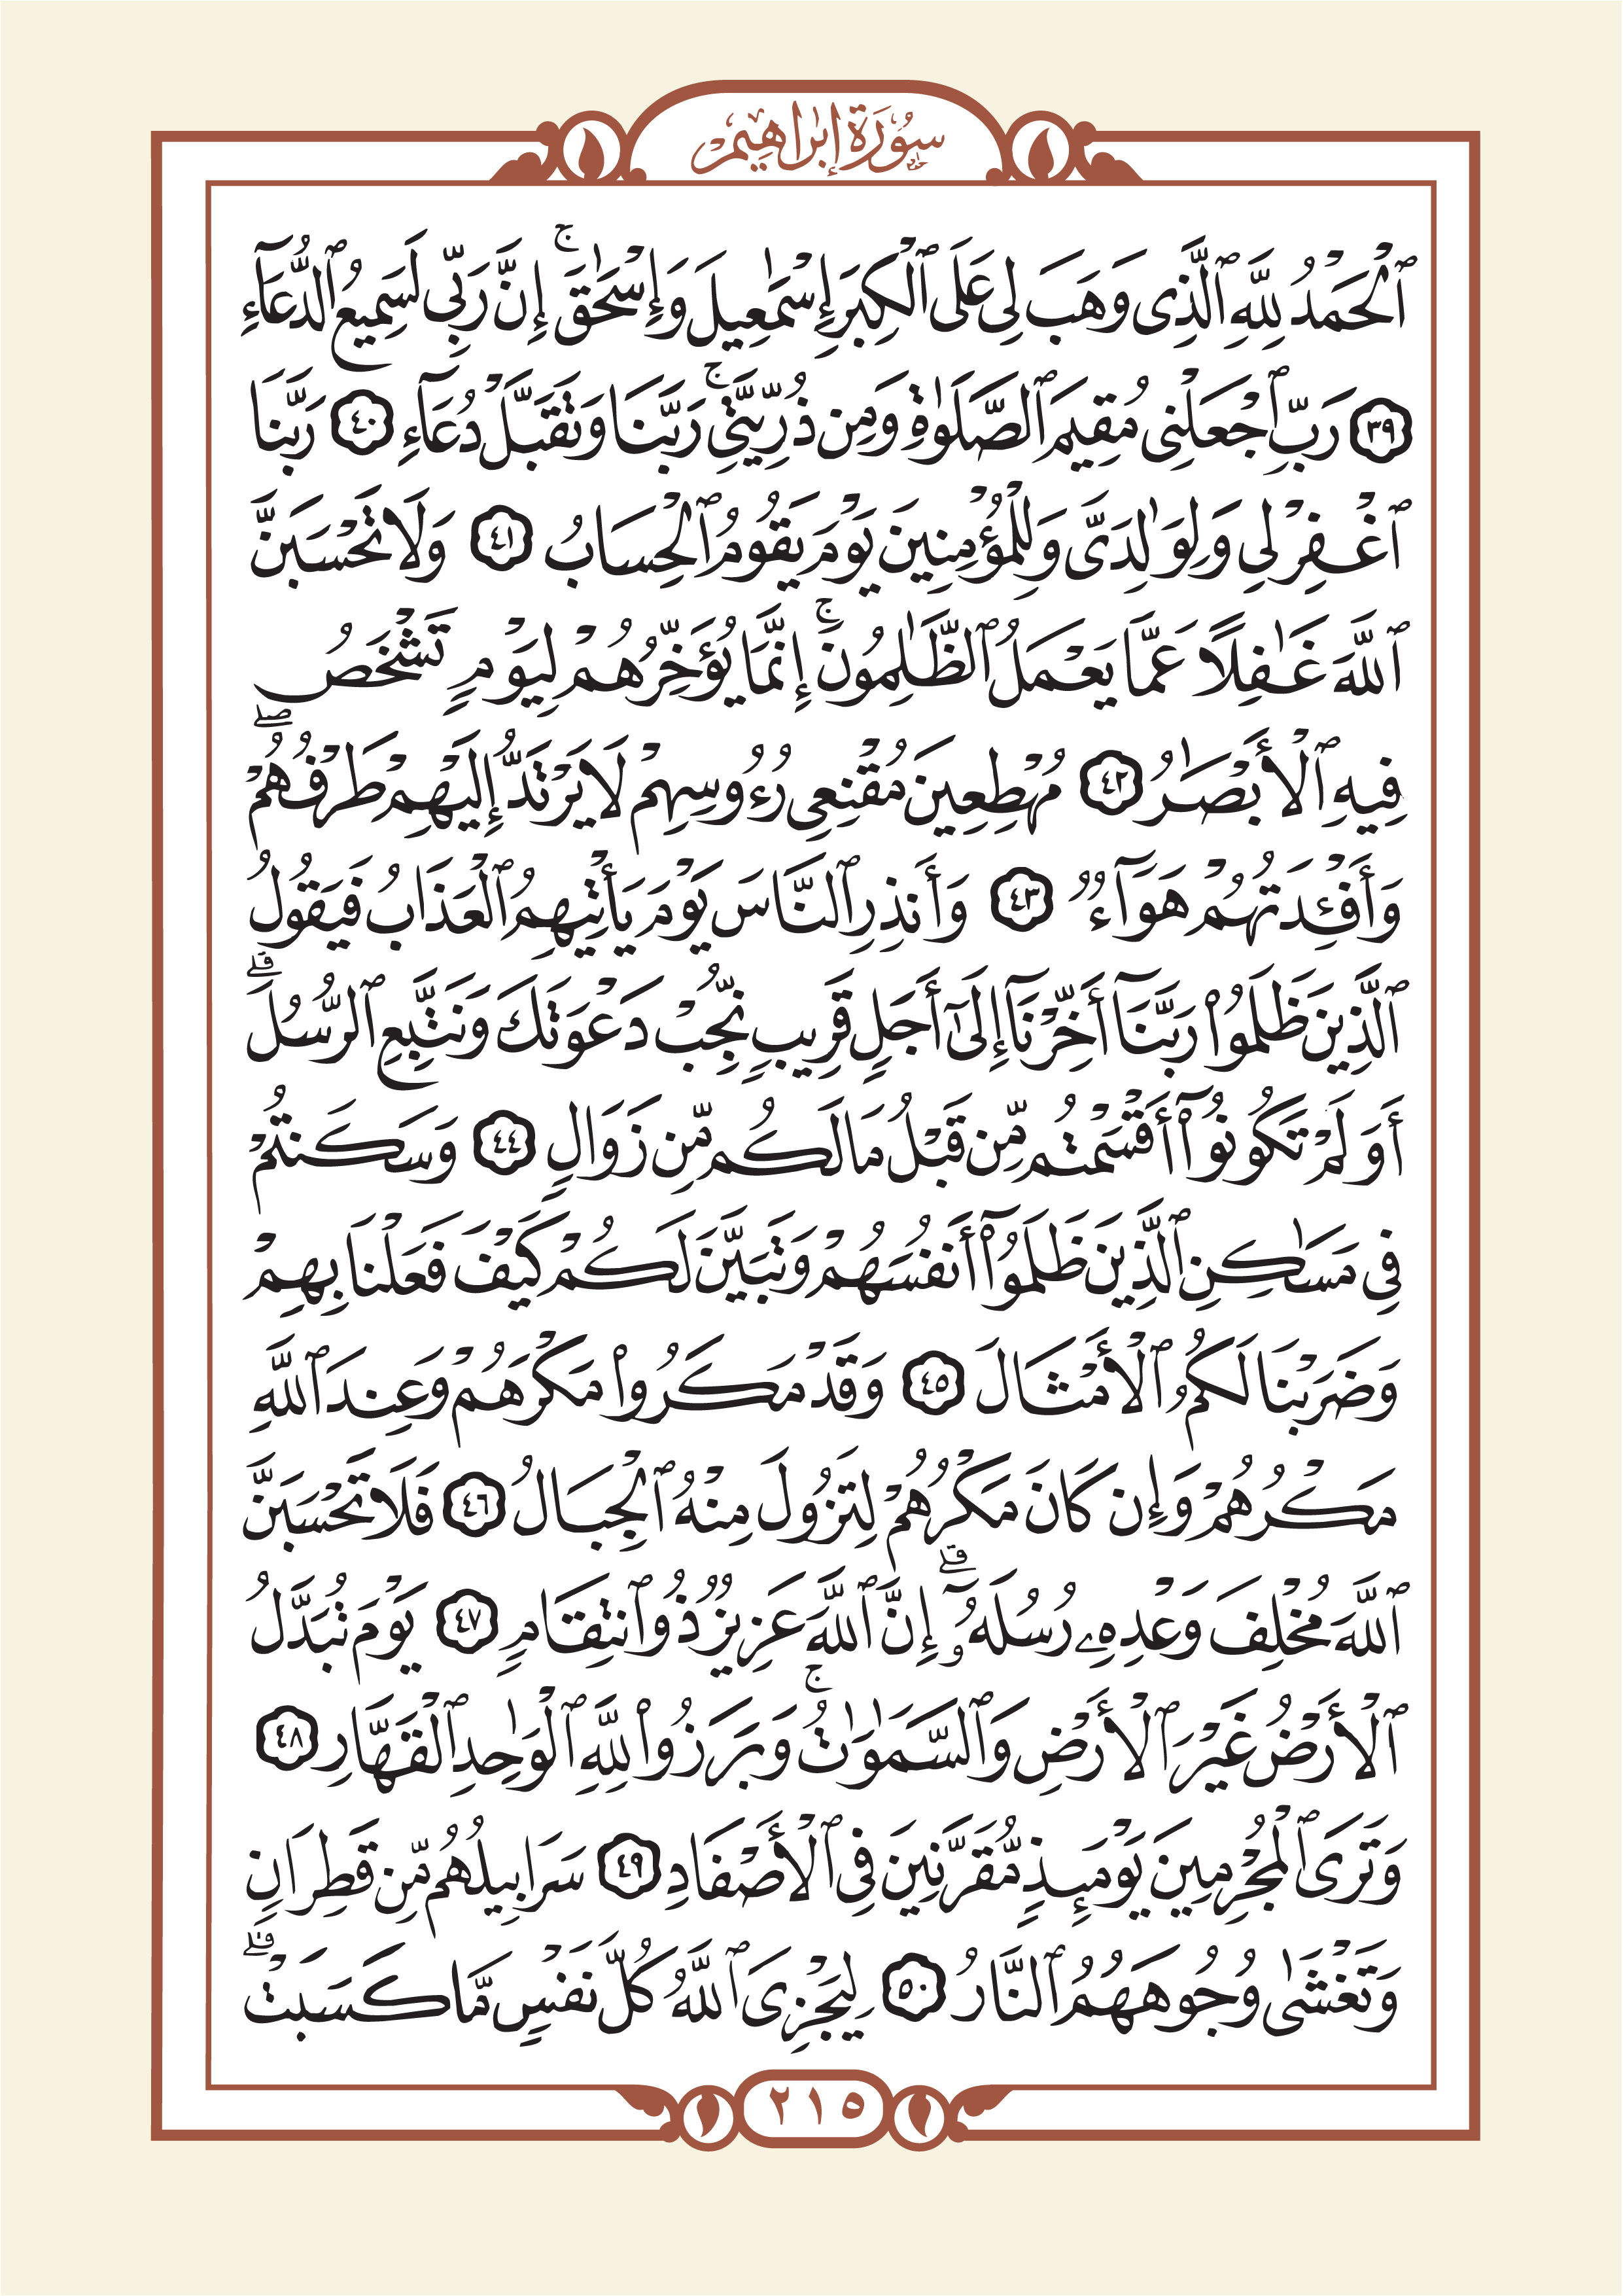 سُورَةُ إِبْرَاهِيمَ
ٱلْحَمْدُ لِلَّهِ ٱلَّذِى وَهَبَ لِى عَلَى ٱلْكِبَرِ إِسْمَٰعِيلَ وَإِسْحَٰقَۚ إِنَّ رَبِّى لَسَمِيعُ ٱلدُّعَآءِ
٣٩ رَبِّ ٱجْعَلْنِى مُقِيمَ ٱلصَّلَوٰةِ وَمِن ذُرِّيَّتِىۚ رَبَّنَا وَتَقَبَّلْ دُعَآءِ ٤٠ رَبَّنَا
ٱغْفِرْ لِى وَلِوَٰلِدَىَّ وَلِلْمُؤْمِنِينَ يَوْمَ يَقُومُ ٱلْحِسَابُ ٤١ وَلَا تَحْسَبَنَّ
ٱللَّهَ غَٰفِلًا عَمَّا يَعْمَلُ ٱلظَّٰلِمُونَۚ إِنَّمَا يُؤَخِّرُهُمْ لِيَوْمٍ تَشْخَصُ
فِيهِ ٱلْأَبْصَٰرُ ٤٢ مُهْطِعِينَ مُقْنِعِى رُءُوسِهِمْ لَا يَرْتَدُّ إِلَيْهِمْ طَرْفُهُمْۖ
وَأَفْـِٔدَتُهُمْ هَوَآءٌ ٤٣ وَأَنذِرِ ٱلنَّاسَ يَوْمَ يَأْتِيهِمُ ٱلْعَذَابُ فَيَقُولُ
ٱلَّذِينَ ظَلَمُوا۟ رَبَّنَآ أَخِّرْنَآ إِلَىٰٓ أَجَلٍ قَرِيبٍ نُّجِبْ دَعْوَتَكَ وَنَتَّبِعِ ٱلرُّسُلَۗ
أَوَلَمْ تَكُونُوٓا۟ أَقْسَمْتُم مِّن قَبْلُ مَا لَكُم مِّن زَوَالٍ ٤٤ وَسَكَنتُمْ
فِى مَسَٰكِنِ ٱلَّذِينَ ظَلَمُوٓا۟ أَنفُسَهُمْ وَتَبَيَّنَ لَكُمْ كَيْفَ فَعَلْنَا بِهِمْ
وَضَرَبْنَا لَكُمُ ٱلْأَمْثَالَ ٤٥ وَقَدْ مَكَرُوا۟ مَكْرَهُمْ وَعِندَ ٱللَّهِ
مَكْرُهُمْ وَإِن كَانَ مَكْرُهُمْ لِتَزُولَ مِنْهُ ٱلْجِبَالُ ٤٦ فَلَا تَحْسَبَنَّ
ٱللَّهَ مُخْلِفَ وَعْدِهِۦ رُسُلَهُۥٓۗ إِنَّ ٱللَّهَ عَزِيزٌ ذُو ٱنتِقَامٍ ٤٧ يَوْمَ تُبَدَّلُ
ٱلْأَرْضُ غَيْرَ ٱلْأَرْضِ وَٱلسَّمَٰوَٰتُۖ وَبَرَزُوا۟ لِلَّهِ ٱلْوَٰحِدِ ٱلْقَهَّارِ ٤٨
وَتَرَى ٱلْمُجْرِمِينَ يَوْمَئِذٍ مُّقَرَّنِينَ فِى ٱلْأَصْفَادِ ٤٩ سَرَابِيلُهُم مِّن قَطِرَانٍ
وَتَغْشَىٰ وُجُوهَهُمُ ٱلنَّارُ ٥٠ لِيَجْزِىَ ٱللَّهُ كُلَّ نَفْسٍ مَّا كَسَبَتْۗ
٢١٥